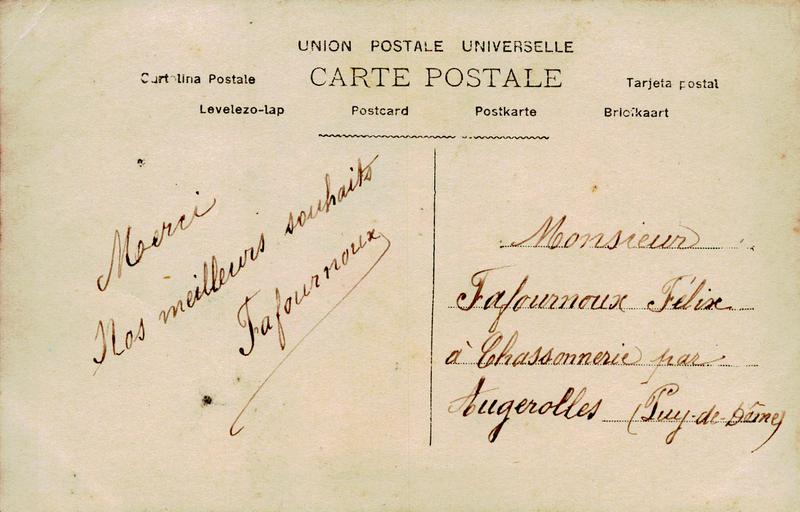 UNION POSTALE UNIVERSELLE
CARTE POSTALE
Cartolina Postale
Tarjeta postal
Levelezo-lap
Postcard
Postkarte
Briefkaart
Merci
Nos meilleurs souhaits
Fafournoux
Monsieur
Fafournoux Félix
à Chassonnerie par
Augerolles (Puy-de-Dôme)